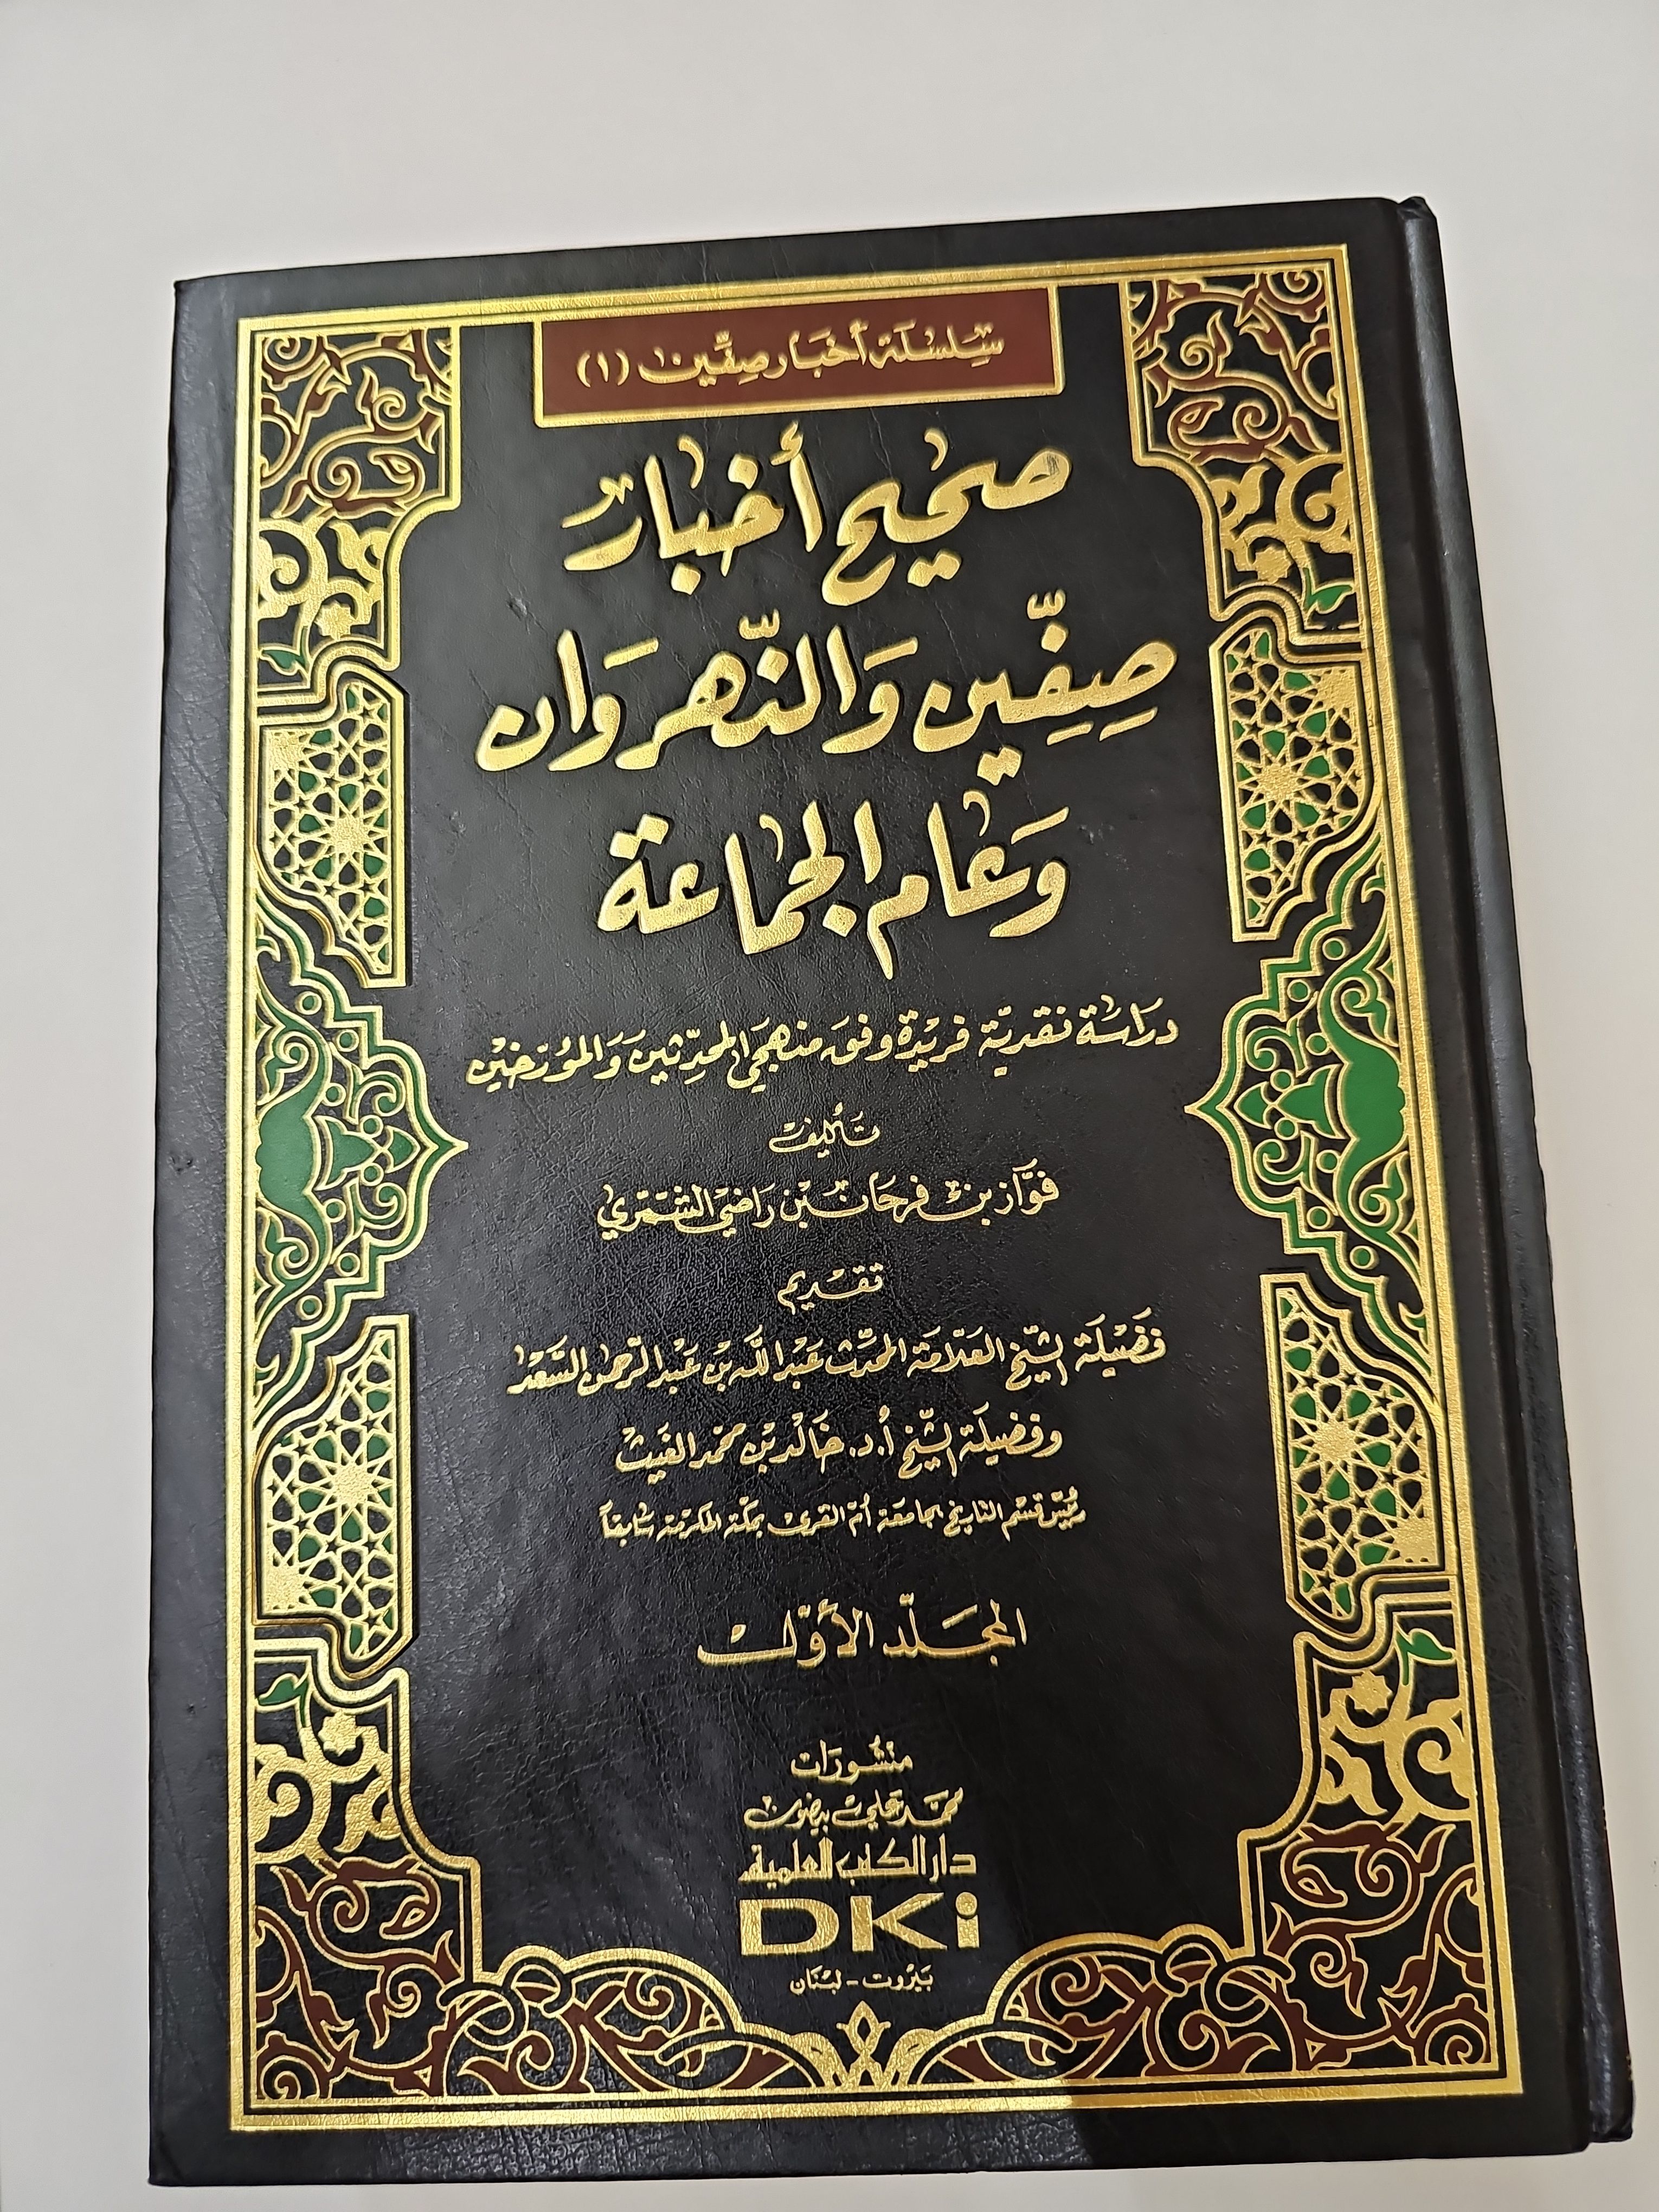 سلسلة أخبار صفين (١)
صحيح أخبار
صِفِّين وَالنَّهروَان
وعَام الجماعة
دراسة نقديّة فريدة وفق منهجي المحدّثين وَالمؤرّخين
تأليف
فوّاز بن فرحان بن راضي الشمّري
تقديم
فضيلة الشّيخ العلّامة المحدّث عبد الله بن عبد الرحمن السّعد
وفضيلة الشّيخ أ.د. خالد بن محمد الغيث
رئيس قسم التاريخ بجامعة أم القرى بمكة المكرمة سابقاً
المجلّد الأوّل
منشورات
محمد علي بيضون
دار الكتب العلمية
DKi
بيروت - لبنان